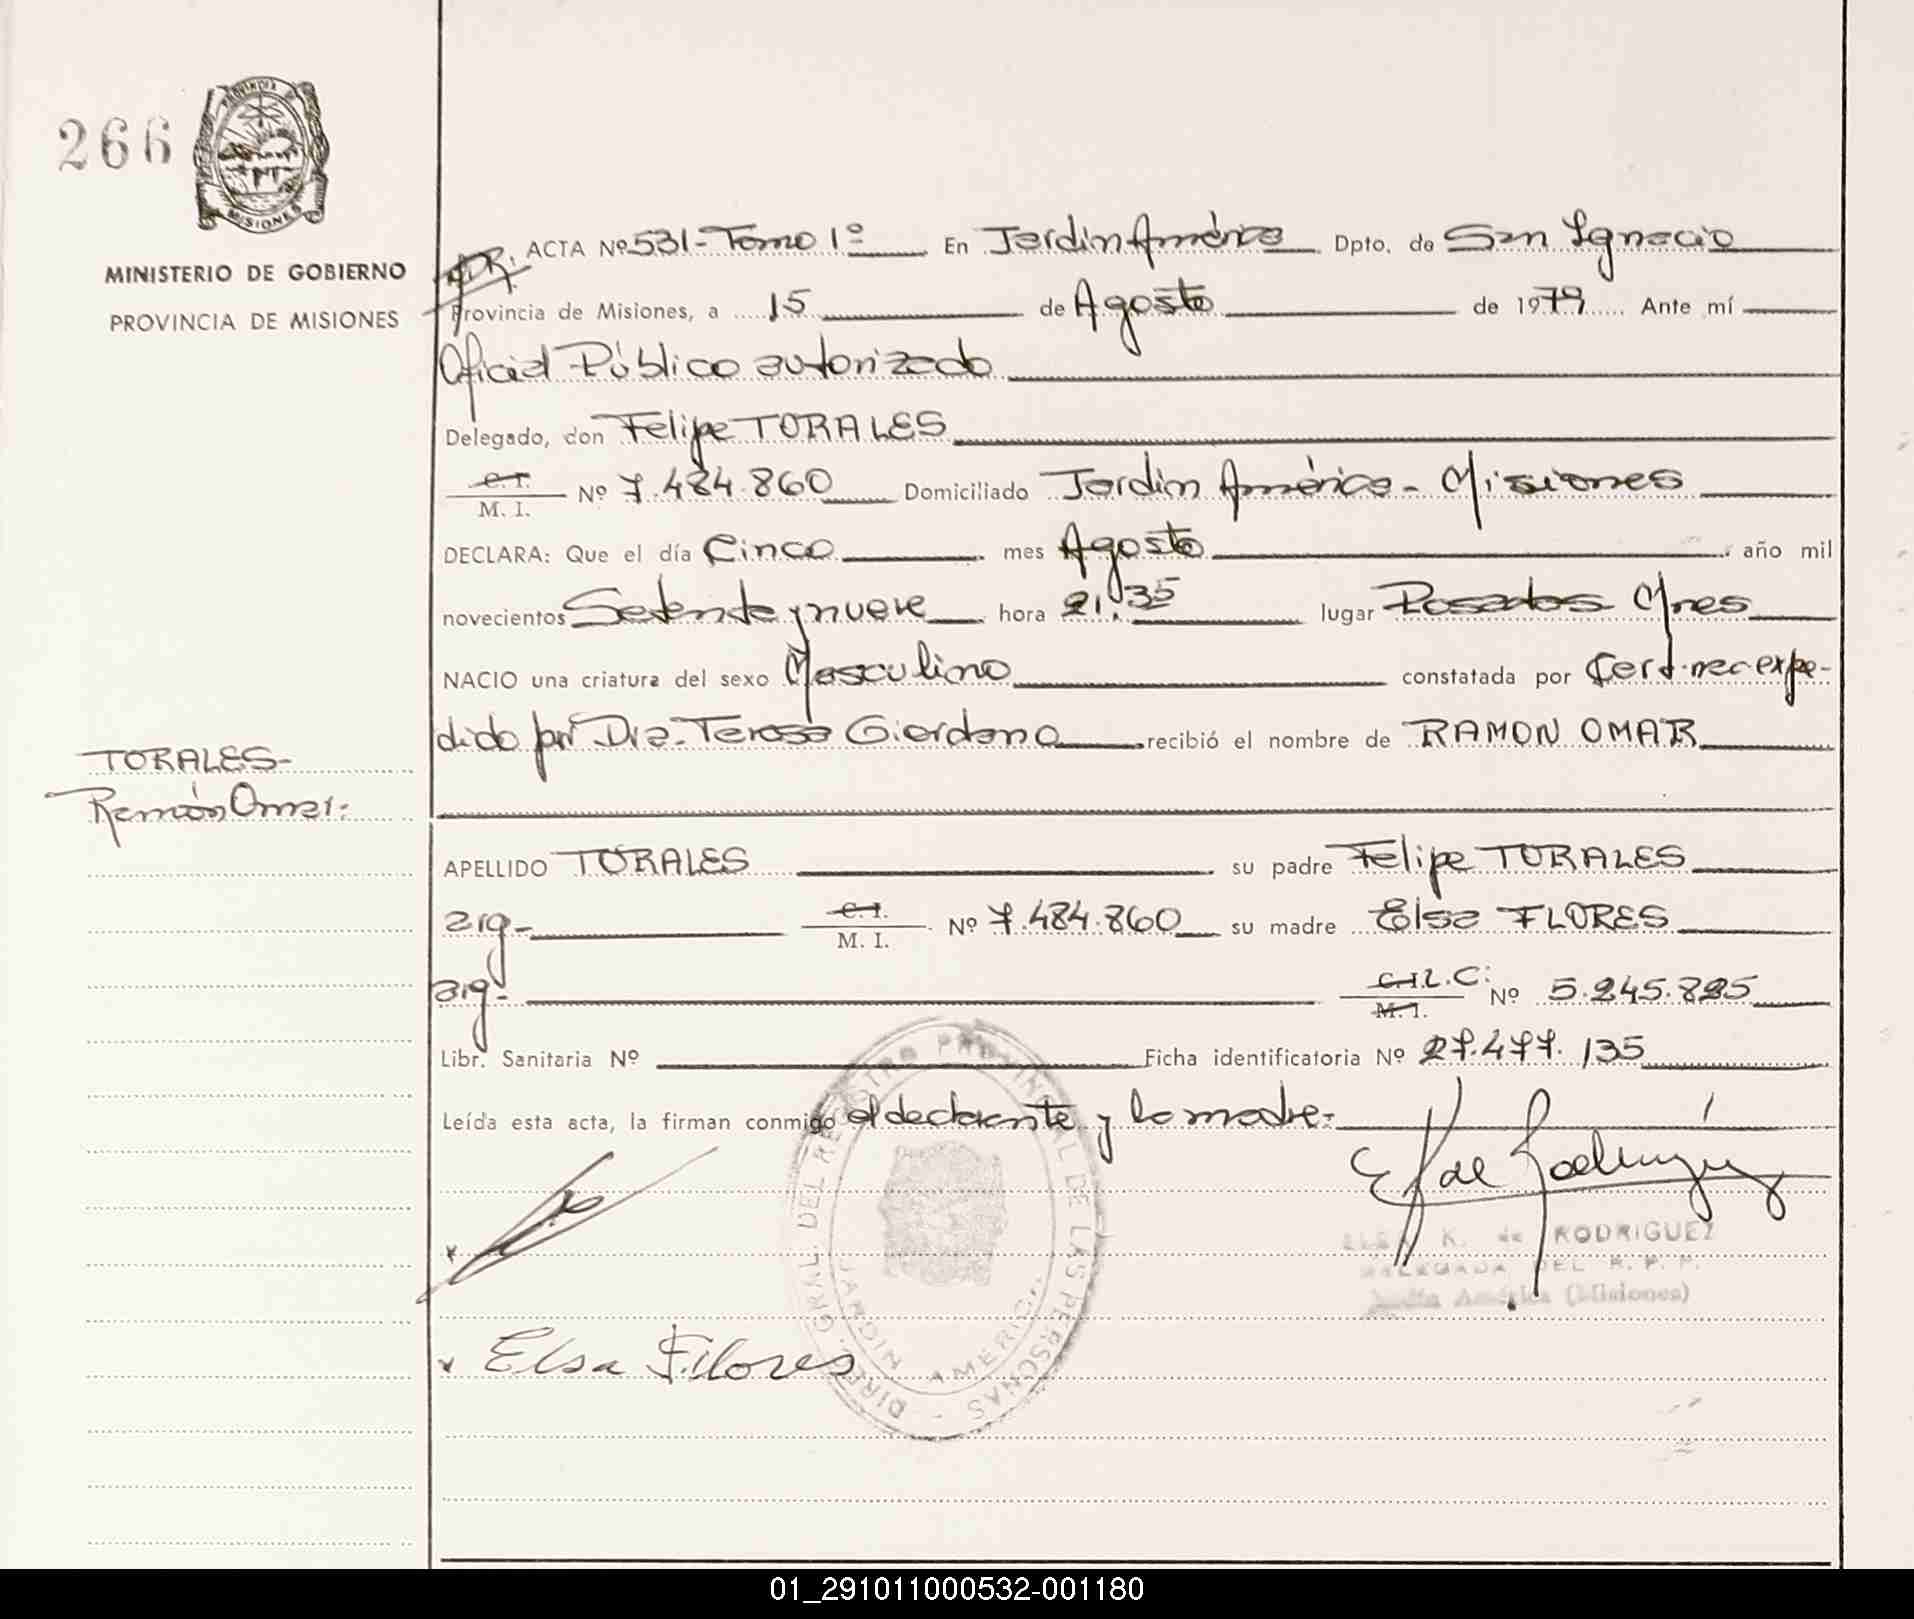 266
PROVINCIA DE MISIONES
MINISTERIO DE GOBIERNO
PROVINCIA DE MISIONES
ACTA Nº 531 - Tomo 1º En Jardín América Dpto. de San Ignacio
Provincia de Misiones, a 15 de Agosto de 1979 Ante mí
Oficial Público autorizado
Delegado, don Felipe TORALES
C.I.
M. I. Nº 7.484.860 Domiciliado Jardín América - Misiones
DECLARA: Que el día Cinco mes Agosto año mil
novecientos Setenta y nueve hora 21,35 lugar Posadas Mnes
NACIO una criatura del sexo Masculino constatada por Cert. nac. expe-
dido por Dra. Teresa Giordano recibió el nombre de RAMON OMAR
TORALES-
Ramón Omar:
APELLIDO TORALES su padre Felipe TORALES
arg- C.I.
M. I. Nº 7.484.860 su madre Elsa FLORES
arg- C.I. L.C.
M. I. Nº 5.245.825
Libr. Sanitaria Nº Ficha identificatoria Nº 27.477.135
Leída esta acta, la firman conmigo el declarante y la madre:
ELSA K. de RODRIGUEZ
DELEGADA DEL R. P. P.
Jardín América (Misiones)
Elsa Flores
DIREC. GRAL. DEL REGISTRO PROVINCIAL DE LAS PERSONAS
JARDIN AMERICA
01_291011000532-001180